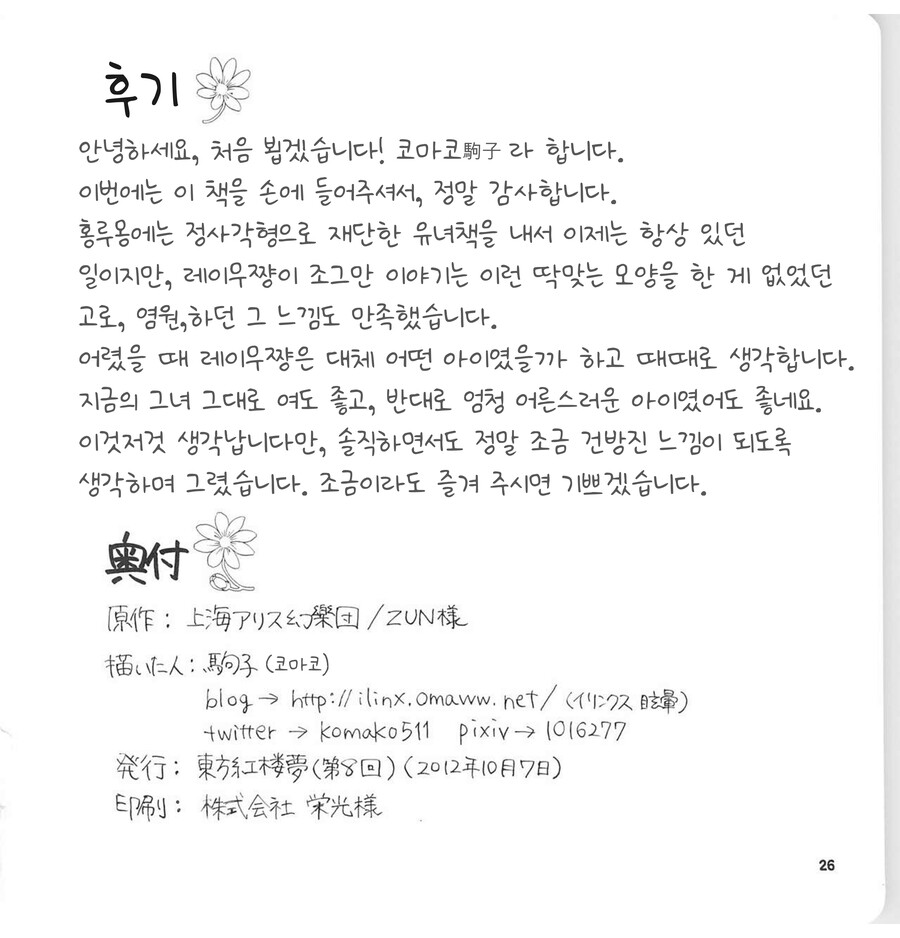 후기
안녕하세요, 처음 뵙겠습니다! 코마코駒子 라 합니다.
이번에는 이 책을 손에 들어주셔서, 정말 감사합니다.
홍루몽에는 정사각형으로 재단한 유녀책을 내서 이제는 항상 있던
일이지만, 레이무쨩이 조그만 이야기는 이런 딱맞는 모양을 한 게 없었던
고로, 염원,하던 그 느낌도 만족했습니다.
어렸을 때 레이무쨩은 대체 어떤 아이였을까 하고 때때로 생각합니다.
지금의 그녀 그대로 여도 좋고, 반대로 엄청 어른스러운 아이였어도 좋네요.
이것저것 생각납니다만, 솔직하면서도 정말 조금 건방진 느낌이 되도록
생각하며 그렸습니다. 조금이라도 즐겨 주시면 기쁘겠습니다.
奥付
原作: 上海アリス幻樂団/ZUN様
描いた人: 駒子(코마코)
blog→ http://ilinx.omaww.net/ (イリンクス 眩暈)
twitter → komako511 pixiv→ 1016277
発行: 東方紅楼夢(第8回)(2012年10月7日)
印刷: 株式会社 栄光様
26